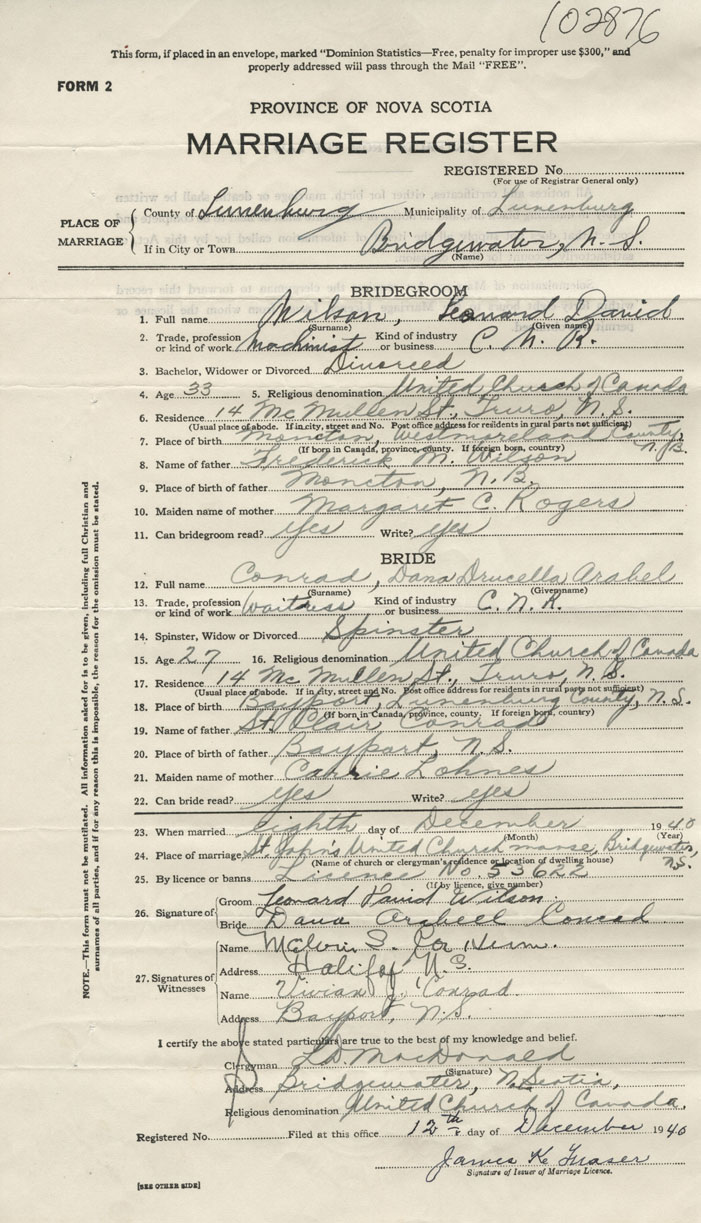 102876
This form, if placed in an envelope, marked "Dominion Statistics—Free, penalty for improper use $300," and
properly addressed will pass through the Mail "FREE".
FORM 2
PROVINCE OF NOVA SCOTIA
MARRIAGE REGISTER
REGISTERED No.
(For use of Registrar General only)
PLACE OF MARRIAGE
County of Lunenburg Municipality of Lunenburg
If in City or Town Bridgewater, N.S.
(Name)
BRIDEGROOM
1. Full name Wilson, Leonard David
(Surname) (Given name)
2. Trade, profession or kind of work Machinist Kind of industry or business C. N. R.
3. Bachelor, Widower or Divorced Divorced
4. Age 33 5. Religious denomination United Church of Canada
6. Residence 14 McMullen St., Truro, N.S.
(Usual place of abode. If in city, street and No. Post office address for residents in rural parts not sufficient)
7. Place of birth Moncton, Westmorland County, N.B.
(If born in Canada, province, county. If foreign born, country)
8. Name of father Frederick M. Wilson
9. Place of birth of father Moncton, N.B.
10. Maiden name of mother Margaret C. Rogers
11. Can bridegroom read? yes Write? yes
BRIDE
12. Full name Conrad, Dana Drucella Arabel
(Surname) (Given name)
13. Trade, profession or kind of work Waitress Kind of industry or business C. N. R.
14. Spinster, Widow or Divorced Spinster
15. Age 27 16. Religious denomination United Church of Canada
17. Residence 14 McMullen St., Truro, N.S.
(Usual place of abode. If in city, street and No. Post office address for residents in rural parts not sufficient)
18. Place of birth Bayport, Lunenburg County, N.S.
(If born in Canada, province, county. If foreign born, country)
19. Name of father St. Clair Conrad
20. Place of birth of father Bayport, N.S.
21. Maiden name of mother Carrie Lohnes
22. Can bride read? yes Write? yes
23. When married eighth day of December 1940
(Month) (Year)
24. Place of marriage St. John's United Church manse, Bridgewater, N.S.
(Name of church or clergyman's residence or location of dwelling house)
25. By licence or banns Licence No. 53622
(If by licence, give number)
26. Signature of
Groom Leonard David Wilson
Bride Dana Arabell Conrad
27. Signatures of Witnesses
Name Melvin S.
Address Halifax N.S.
Name Vivian J. Conrad
Address Bayport, N.S.
I certify the above stated particulars are true to the best of my knowledge and belief.
Clergyman L.D. MacDonald
(Signature)
Address Bridgewater, N. Scotia,
Religious denomination United Church of Canada.
Registered No. Filed at this office 12th day of December 1940
James K. Fraser
Signature of Issuer of Marriage Licence.
[SEE OTHER SIDE]
NOTE.—This form must not be mutilated. All information asked for is to be given, including full Christian and
surnames of all parties, and if for any reason this is impossible, the reason for the omission must be stated.